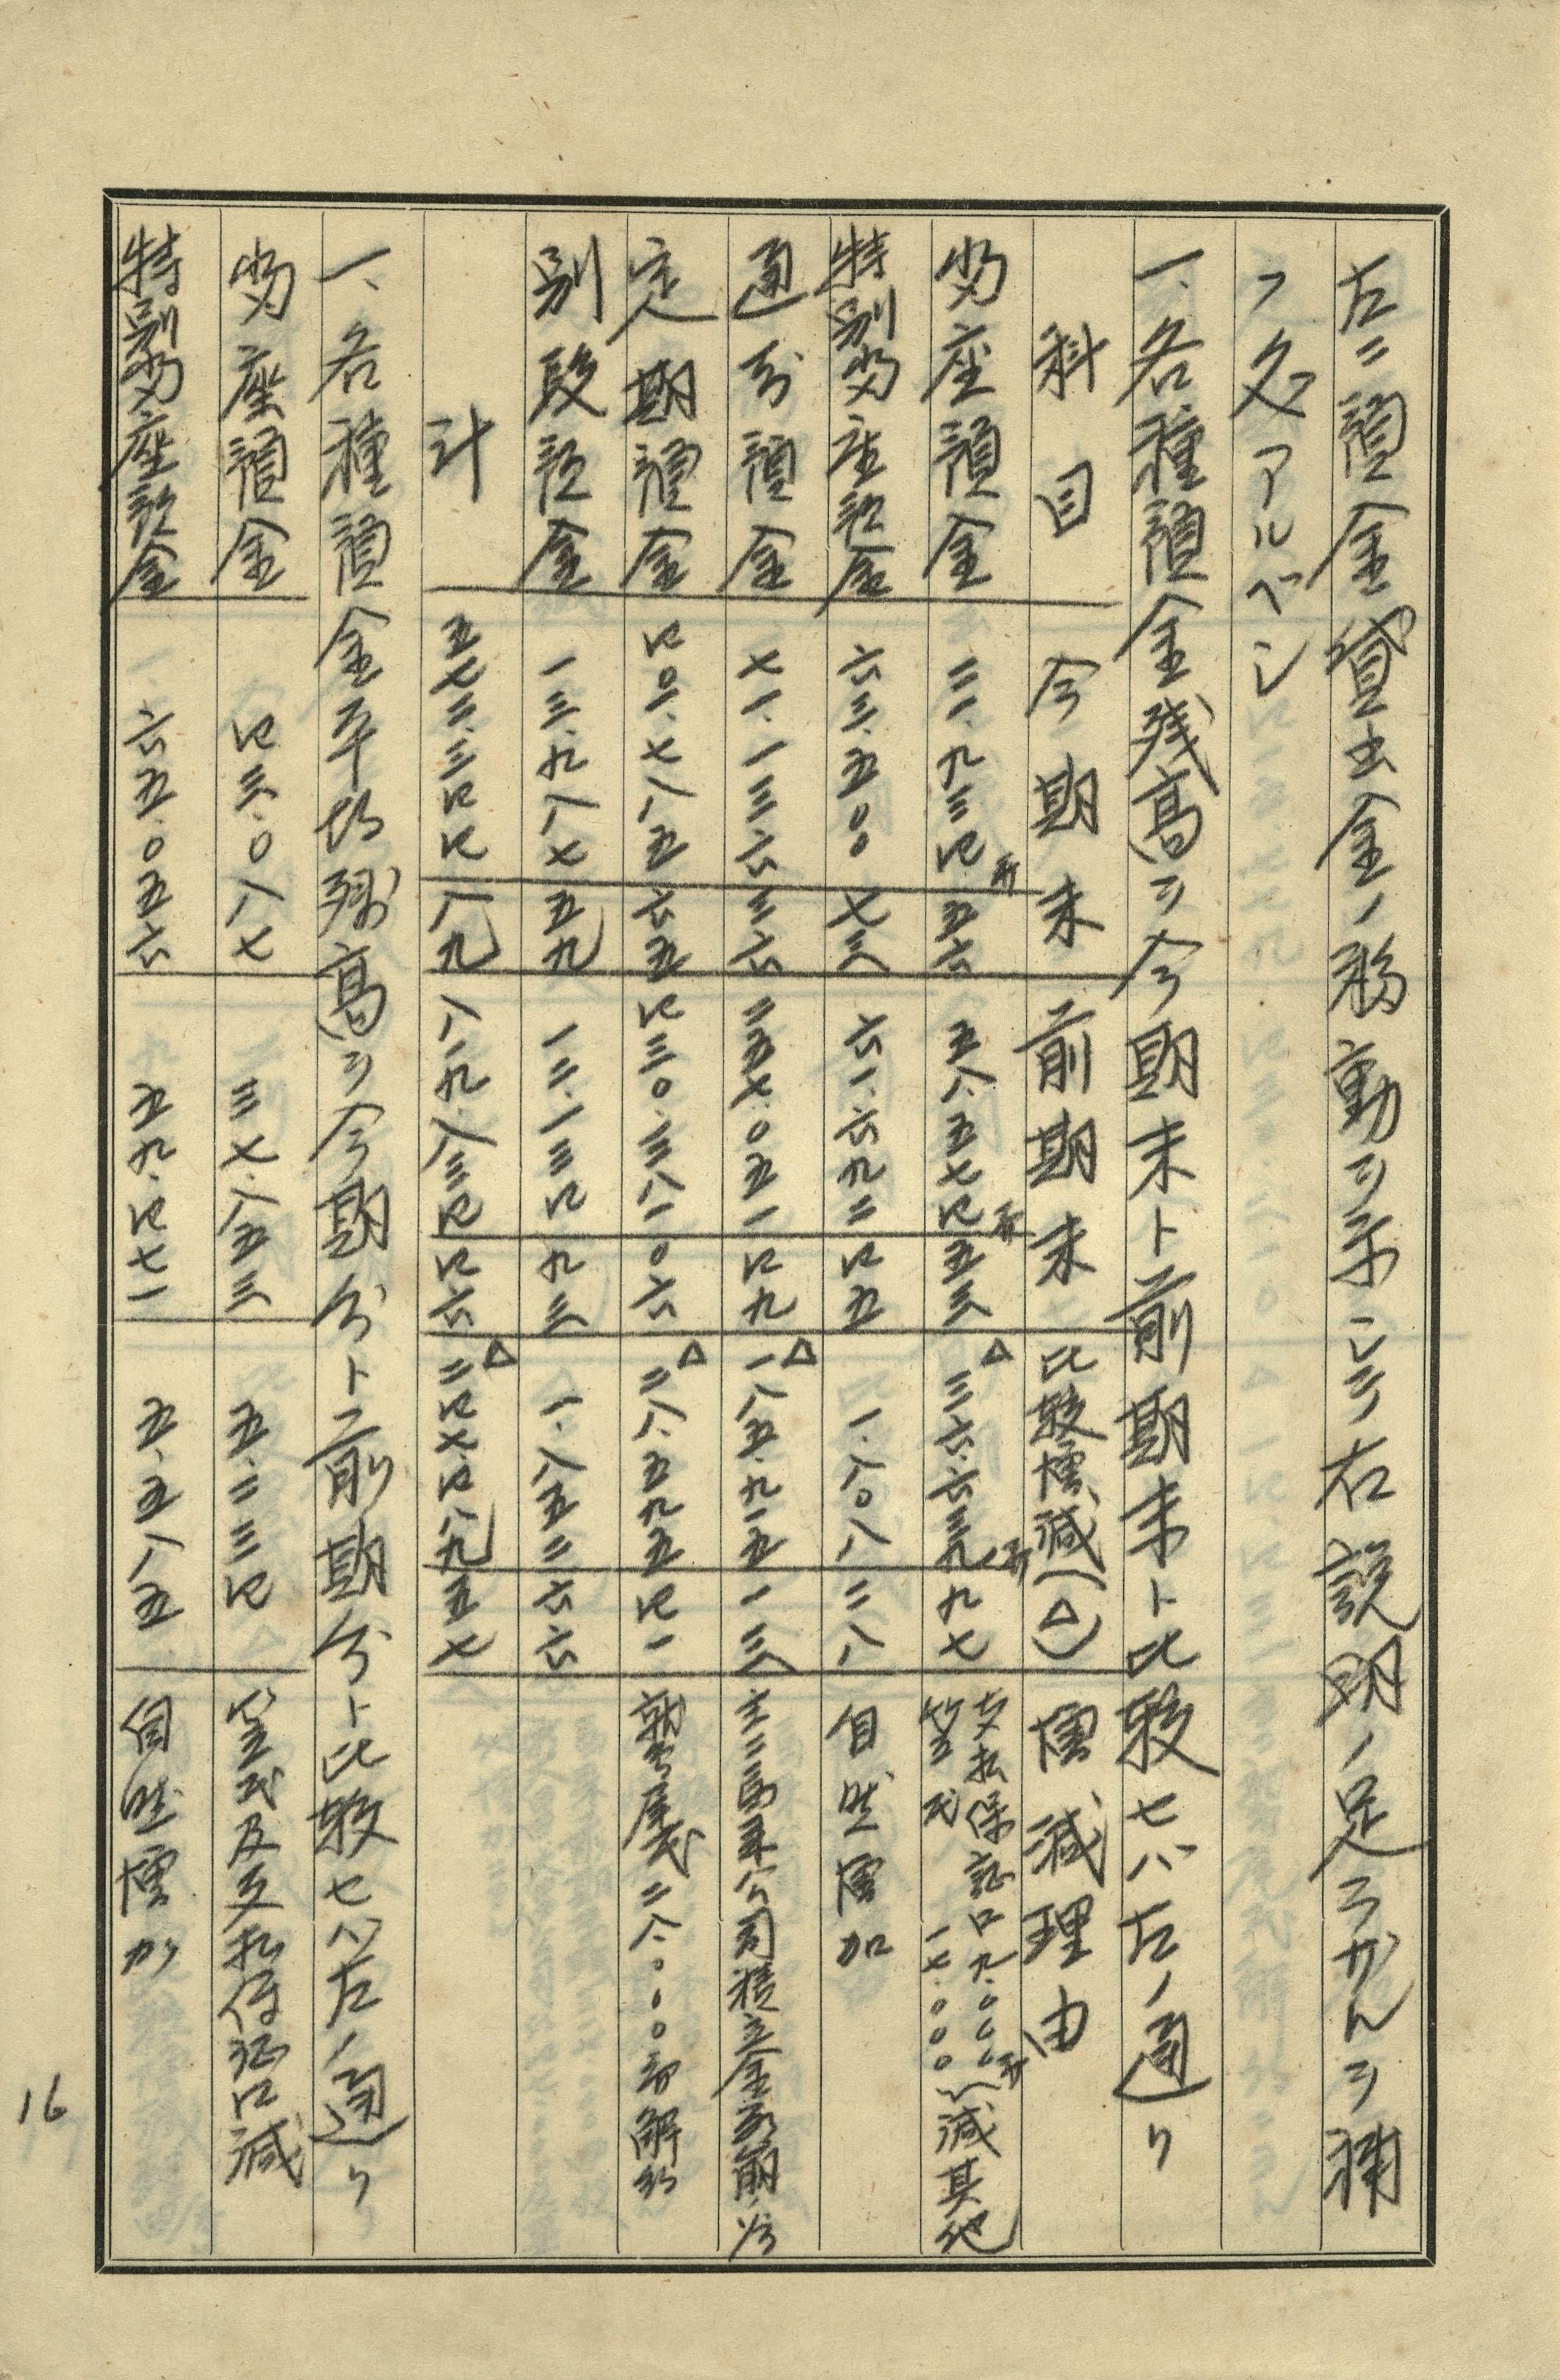 左ニ預金貸出金ノ移動ヲ示シテ右説明ノ足ラザルヲ補
フ処アルベシ
一、各種預金残高ヲ今期末ト前期末ト比較セバ左ノ通リ
科目 今期末 前期末 比較増減(△) 増減理由
当座預金 二一.九三四円五六 五八.五七四円五三 △三六.六三九円九七 支払保証口九.〇〇〇円 一七.〇〇〇減其他
特別当座預金 六三.五〇〇七三 六一.六九二四五 一.八〇八二八 自然増加
通知預金 七一.一三六三六 二五七.〇五一四九 △一八五.九一五一三 公司積立金
定期預金 四〇一.七八五六五 四三〇.三八一〇六 △二八.五九五四一 二八.〇〇〇 解約
別段預金 一三.九八七五九 一二.一三四九三 一.八五二六六
計 五七二.三四四八九 八一九.八三四四六 △二四七.四八九五七
一、各種預金平均残高ヲ今期分ト前期分ト比較セバ左ノ通リ
当座預金 四三.〇八七 三七.八五三 五.二三四 及支払保証口減
特別当座預金 六五.〇五六 五九.四七一 五.五八五 自然増加
16